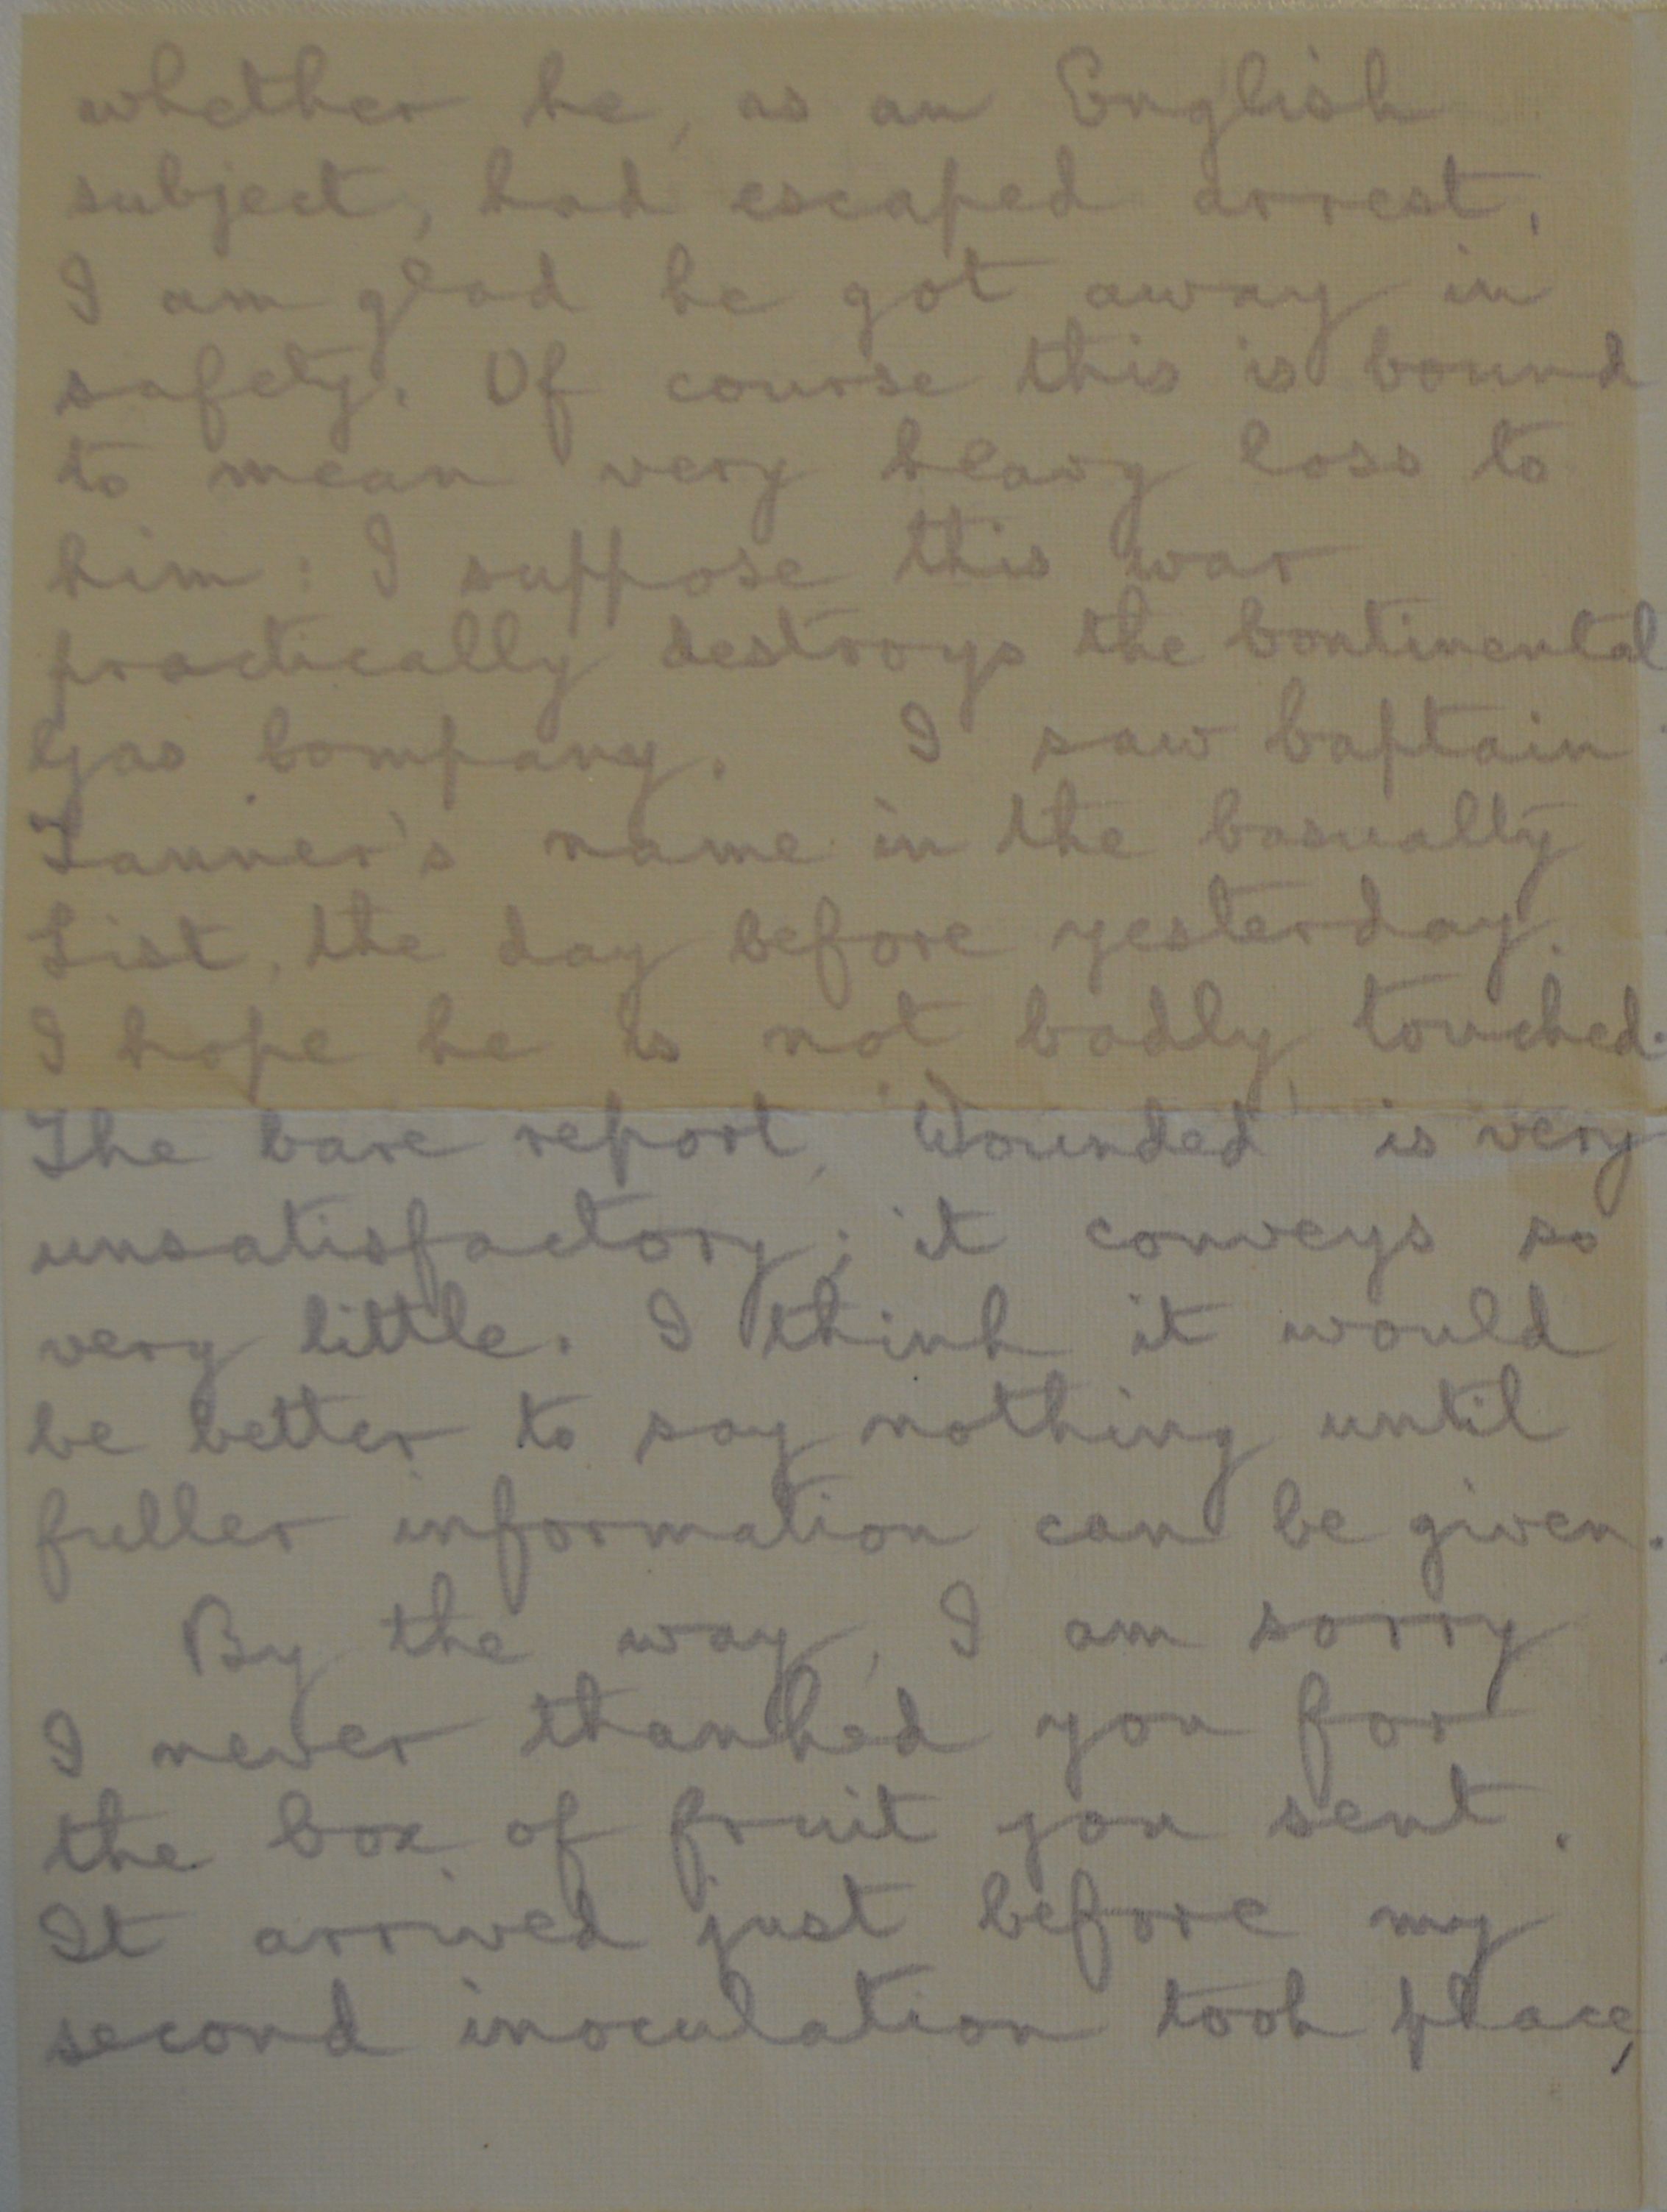 whether he, as an English
subject, had escaped arrest.
I am glad he got away in
safety. Of course this is bound
to mean very heavy loss to
him: I suppose this war
practically destroys the Continental
Gas Company. I saw Captain
Tanner's name in the Casualty
List, the day before yesterday.
I hope he is not badly touched.
The bare report, "Wounded" is very
unsatisfactory; it conveys so
very little. I think it would
be better to say nothing until
fuller information can be given.
By the way, I am sorry
I never thanked you for
the box of fruit you sent.
It arrived just before my
second inoculation took place,